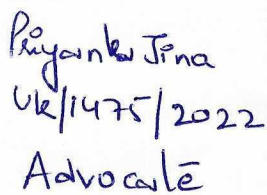 Priyanka Jina
UK/1475/2022
Advocate